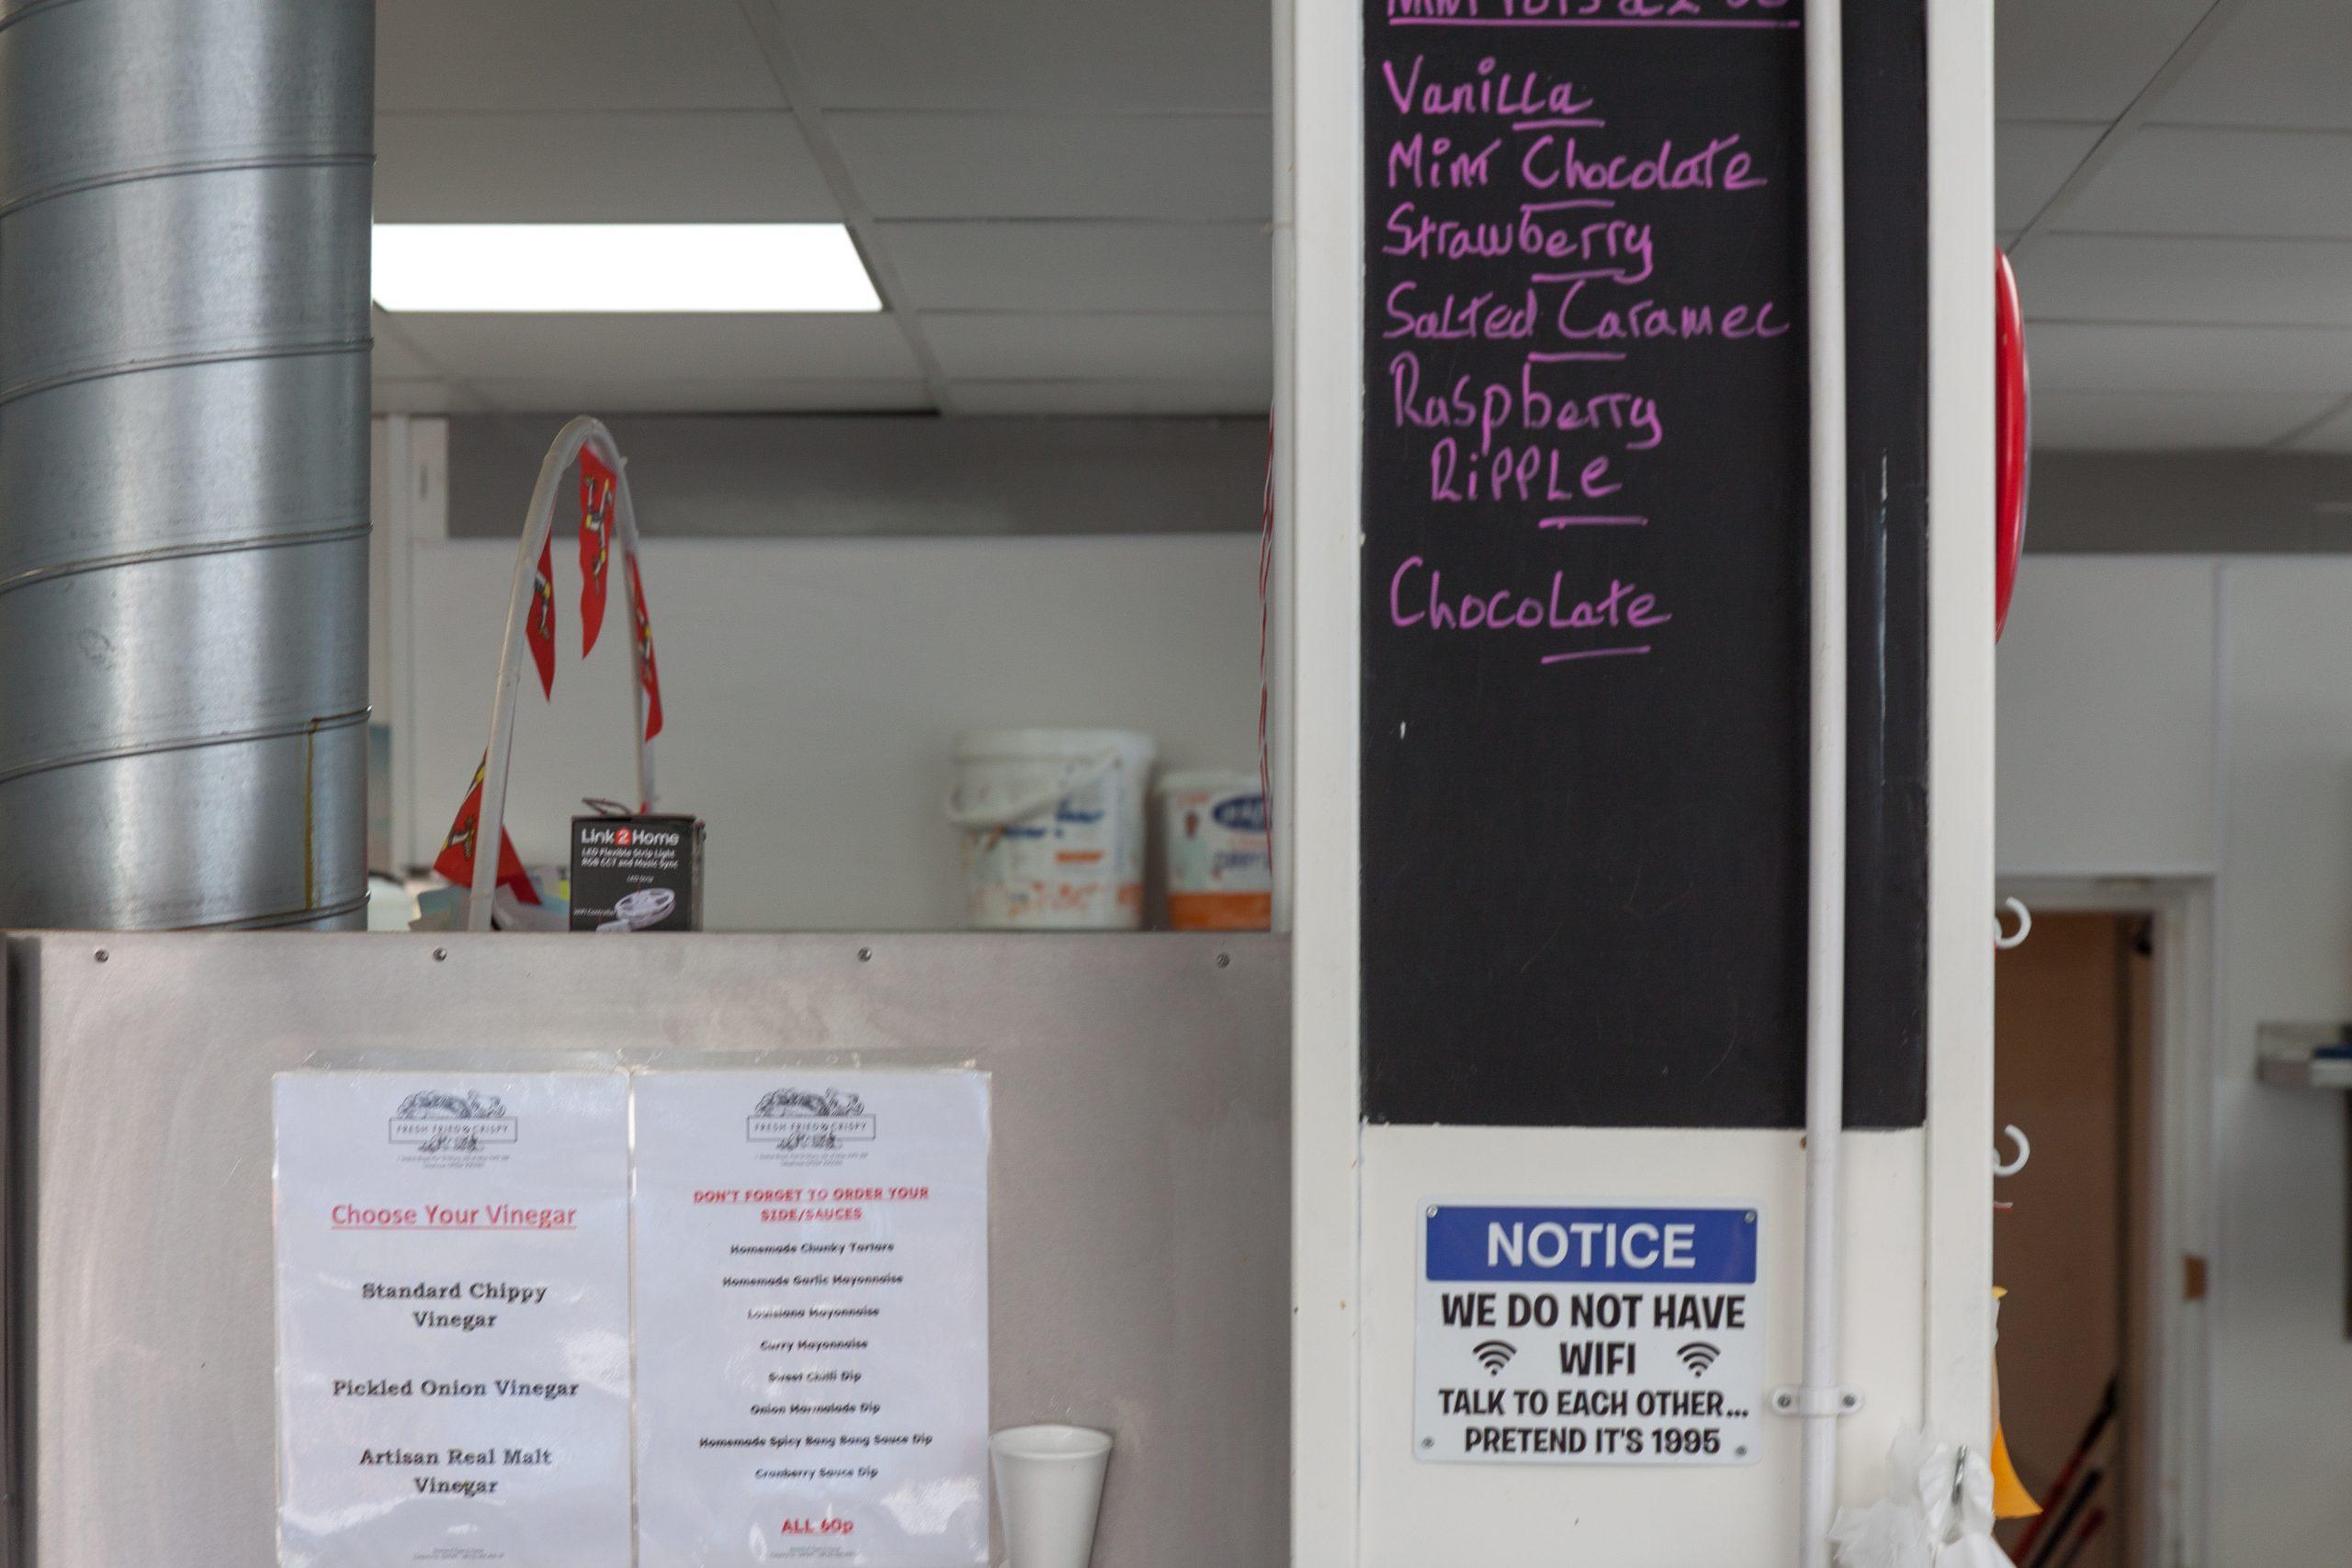 Vanilla
Mint Chocolate
Strawberry
Salted Caramel
Raspberry
Ripple
Chocolate
Link2Home
LED Flexible Strip Light
RGB CCT and Music Sync
LED Strip
WiFi Controller
FRESH FRIED & CRISPY
Choose Your Vinegar
Standard Chippy
Vinegar
Pickled Onion Vinegar
Artisan Real Malt
Vinegar
FRESH FRIED & CRISPY
DON'T FORGET TO ORDER YOUR
SIDE/SAUCES
Homemade Chunky Tartare
Homemade Garlic Mayonnaise
Louisiana Mayonnaise
Curry Mayonnaise
Sweet Chilli Dip
Onion Marmalade Dip
Homemade Spicy Bang Bang Sauce Dip
Cranberry Sauce Dip
ALL 60p
NOTICE
WE DO NOT HAVE
WIFI
TALK TO EACH OTHER...
PRETEND IT'S 1995